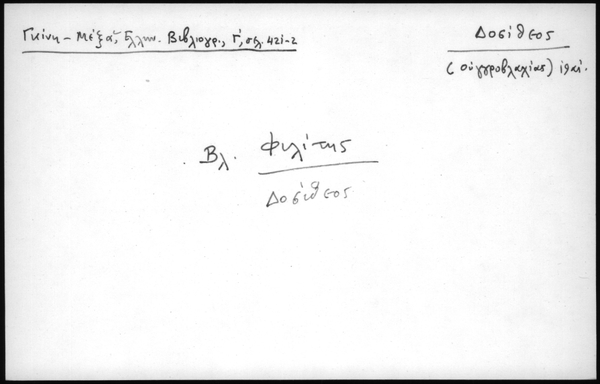 Γκίνη - Μέξα, Ελλην. Βιβλιογρ., Γ', σελ. 421-2
Δοσίθεος
(Ουγγροβλαχίας)
Βλ. Φιλίτης
Δοσίθεος